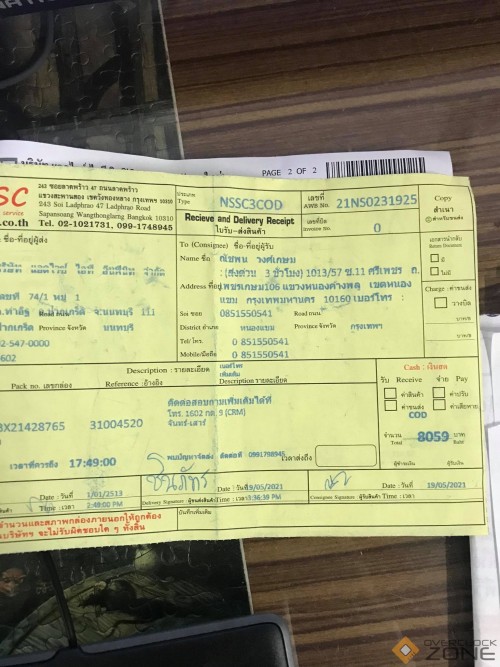 PAGE 2 OF 2
SC
service
co.th
243 ซอยลาดพร้าว 47 ถนนลาดพร้าว
แขวงสะพานสอง เขตวังทองหลาง กรุงเทพฯ 10310
243 Soi Ladphrao 47 Ladphrao Road
Sapansoang Wangthonglarng Bangkok 10310
Tel. 02-1021731, 099-1748945
ประเภท
Type
NSSC3COD
เลขที่
AWB No.
21NS0231925
Copy
สำเนา
Recieve and Delivery Receipt
ใบรับ-ส่งสินค้า
Invoice No.
0
ชื่อ-ที่อยู่ผู้ส่ง
To (Consignee) ชื่อ-ที่อยู่ผู้รับ
Name ชื่อ ณัชพน วงศ์เกษม
: (ส่งด่วน 3 ชั่วโมง) 1013/57 ซ.11 ศรีเพชร ถ.
Address ที่อยู่ เพชรเกษม106 แขวงหนองค้างพลู เขตหนอง
แขม กรุงเทพมหานคร 10160 เบอร์โทร :
มี
ไม่มี
Charge : ค่าขนส่ง
วางบิล
บาท/฿
บาท/฿
เลขที่ 74/1 หมู่ 1
Province จังหวัด จ.นนทบุรี 111
นนทบุรี
02-547-0000
1602
Soi ซอย 0851550541 Road ถนน
District อำเภอ หนองแขม Province จังหวัด กรุงเทพฯ
Tel/โทร. 0 851550541
Mobile/มือถือ 0 851550541
Description : รายละเอียด
Pack no. เลขกล่อง Reference :อ้างอิง Description : รายละเอียด
Cash : เงินสด
รับ Receive จ่าย Pay
ค่าสินค้า ค่าปรับ
ค่าขนส่ง ค่าเสียหาย
COD
BX21428765 31004520
ติดต่อสอบถามเพิ่มเติมได้ที่
โทร. 1602 กด 9 (CRM)
จันทร์-เสาร์
จำนวน
Total 8059 บาท
Baht
เวลาที่ควรถึง 17:49:00
พบปัญหาจัดส่ง ติดต่อที่ 0991798945
เวลาส่งถึง
ผู้ชำระเงิน ผู้รับเงิน
Date : วันที่ 1/01/2513
Time : เวลา 2:48:00 PM
Date : วันที่ 19/05/2021
Delivery Signature ผู้ขนส่งสินค้า Time : เวลา 3:36:38 PM
Date : วันที่ 19/05/2021
Consignee Signature ผู้รับสินค้า Time : เวลา
จำนวนและสภาพกล่องภายนอกให้ถูกต้อง
บริษัทฯ จะไม่รับผิดชอบใด ๆ ทั้งสิ้น
บันทึกเพิ่มเติม
OVERCLOCK
ZONE